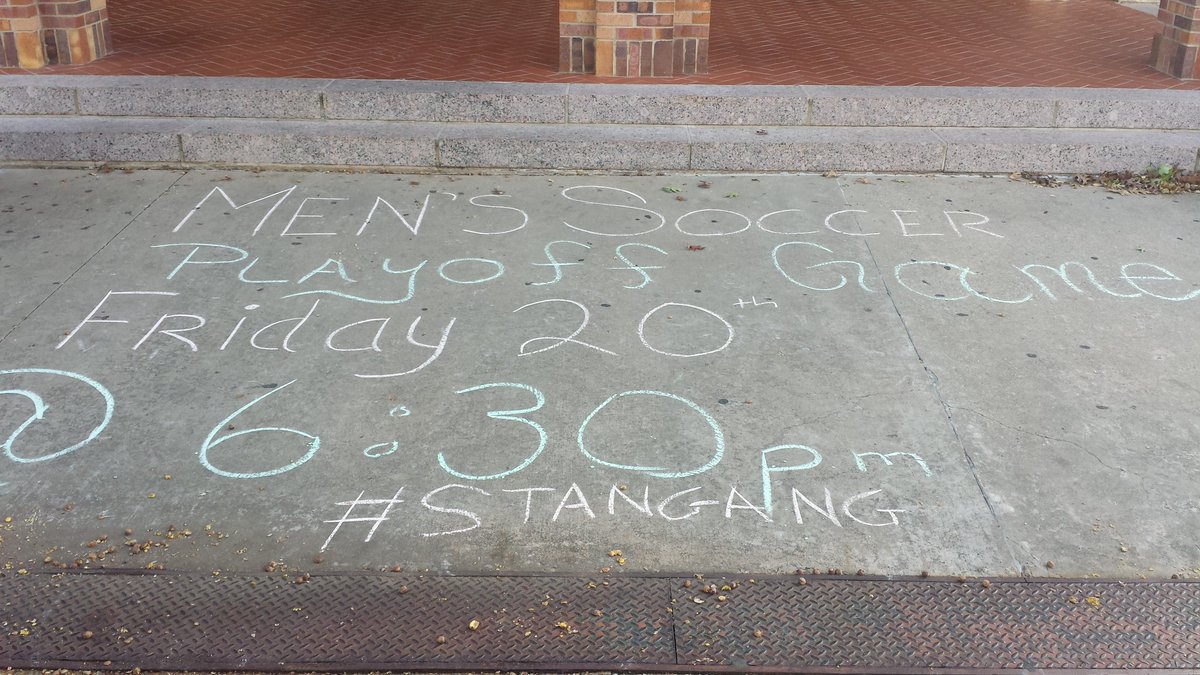 Men's Soccer
Playoff Game
Friday 20th
@ 6:30 pm
#STANGANG